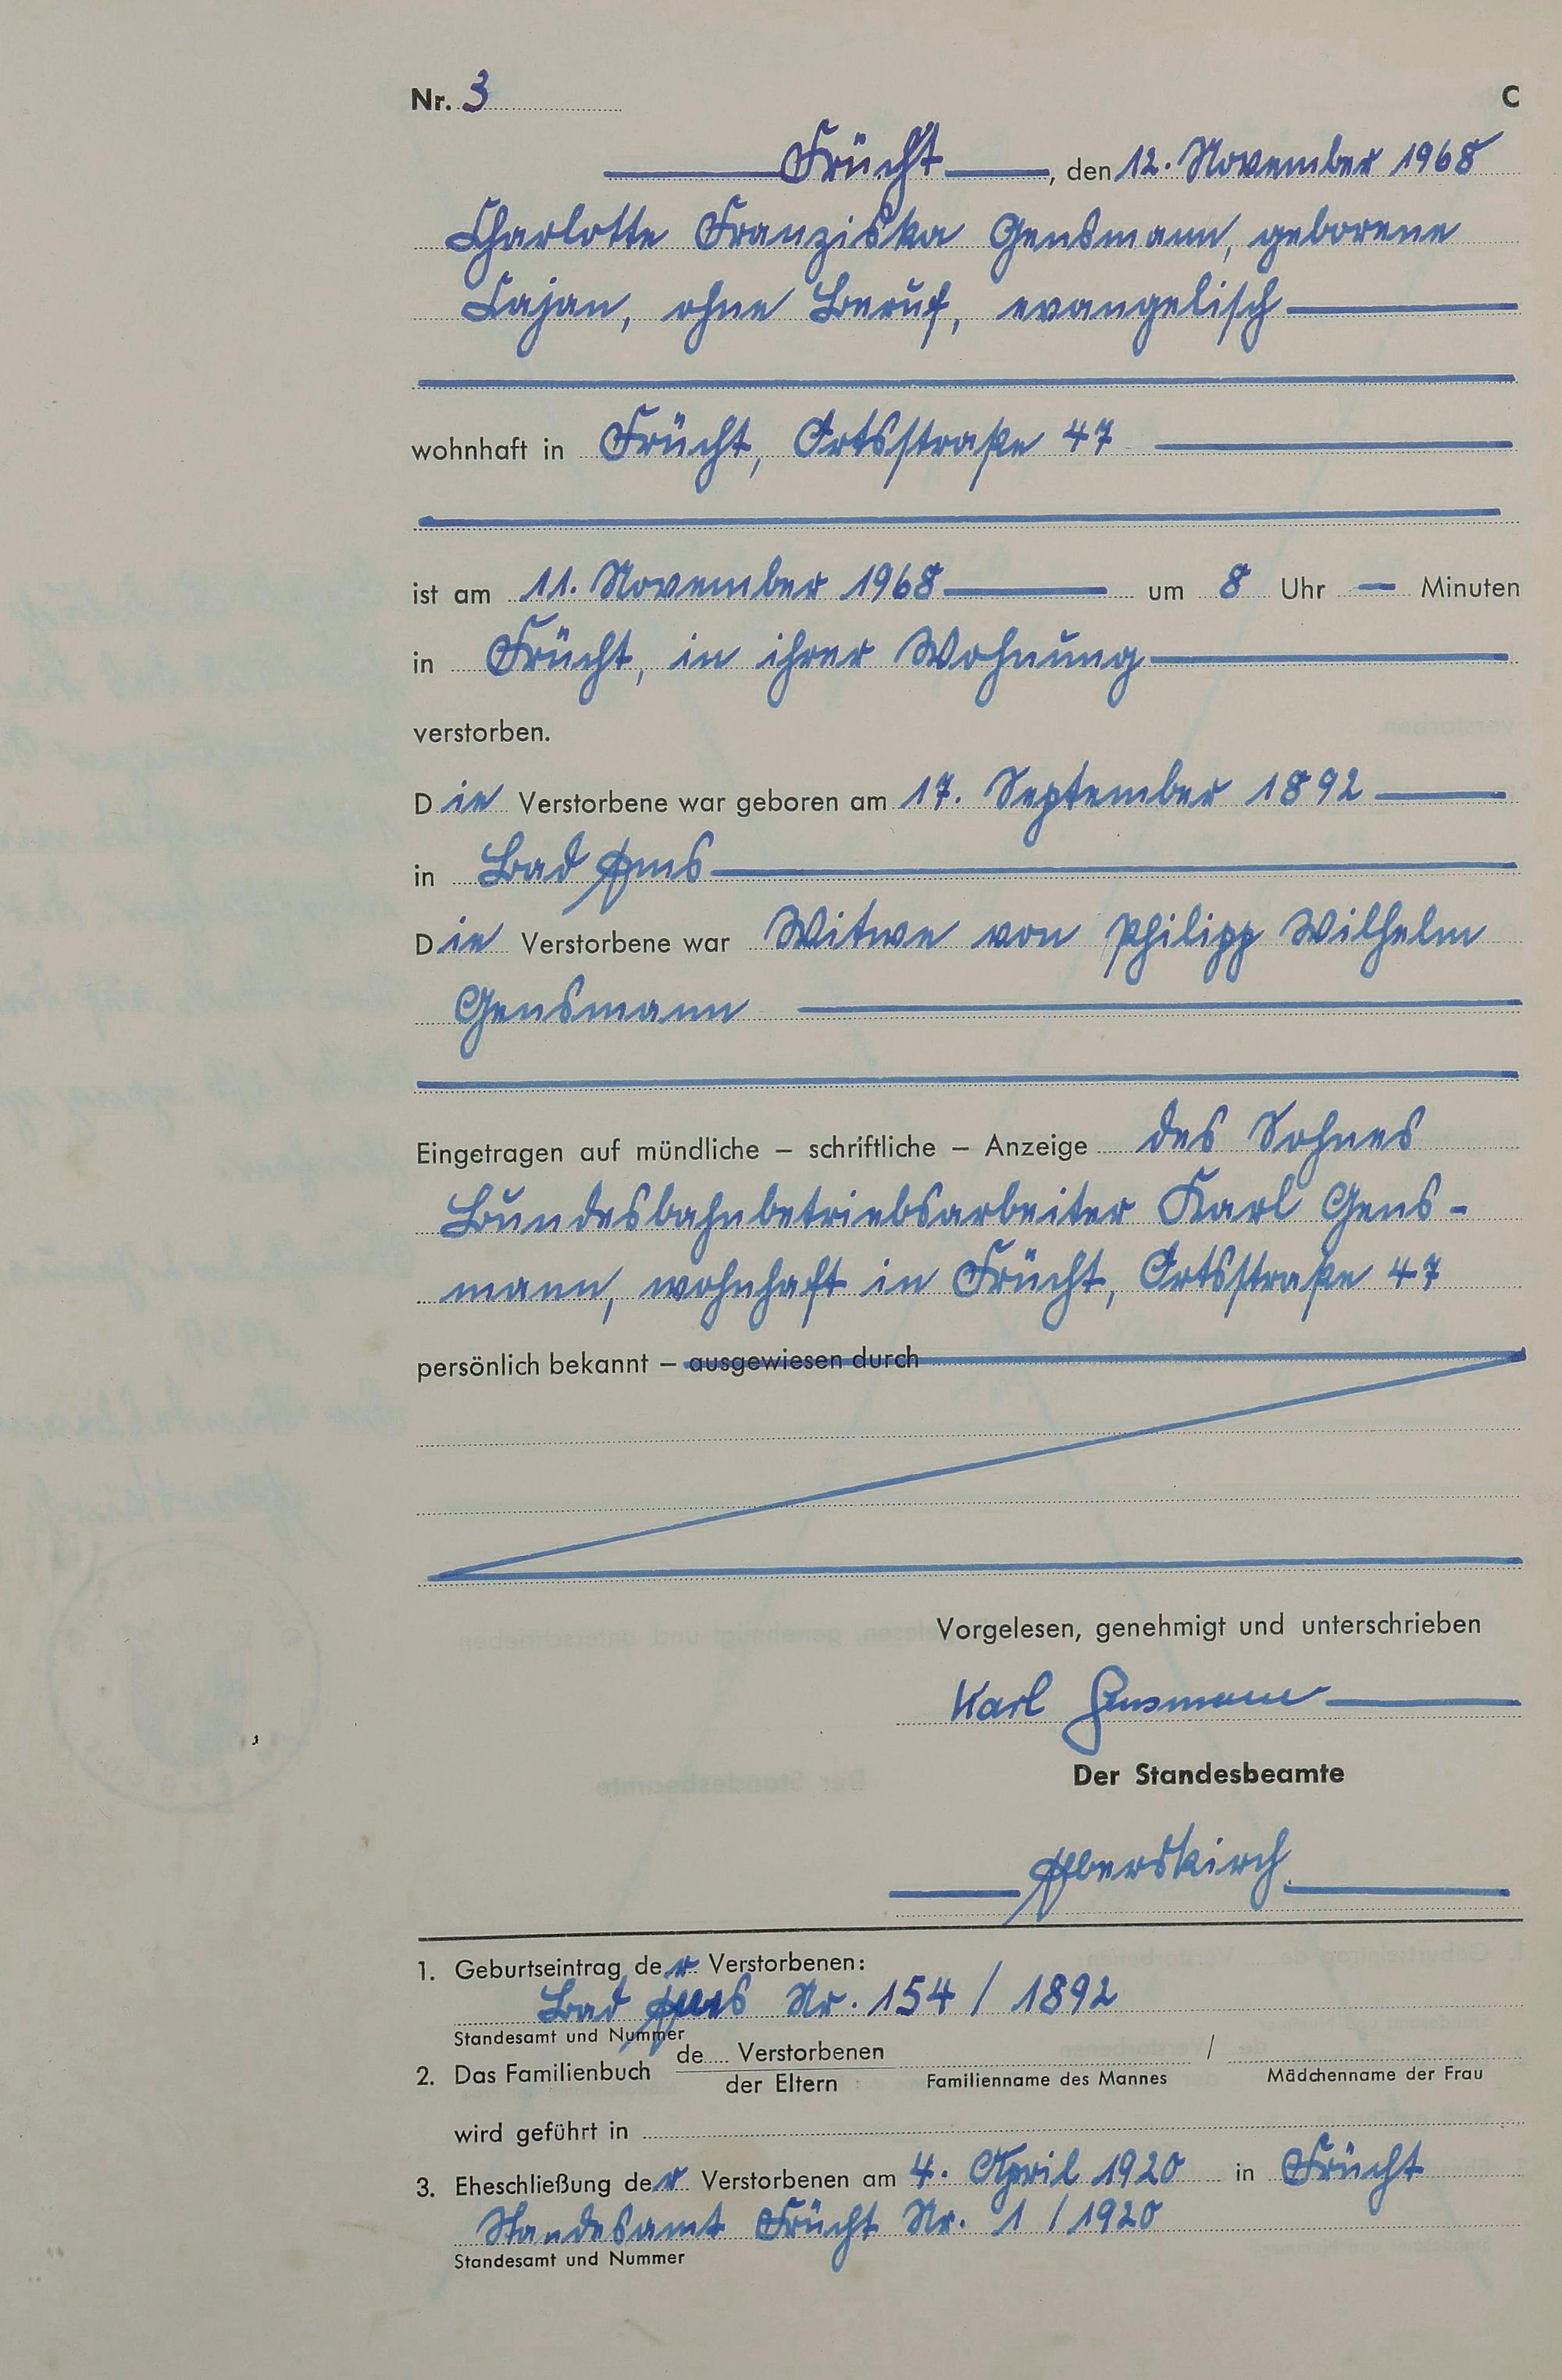 Nr. 3 C
Frücht, den 12. November 1968
Charlotte Franziska Gensmann, geborene
Cajan, ohne Beruf, evangelisch
wohnhaft in Frücht, Ortsstraße 47
ist am 11. November 1968 um 8 Uhr — Minuten
in Frücht, in ihrer Wohnung
verstorben.
Die Verstorbene war geboren am 17. September 1892
in Bad Ems
Die Verstorbene war Witwe von Philipp Wilhelm
Gensmann
Eingetragen auf mündliche – schriftliche – Anzeige des Sohnes
Bundesbahnbetriebsarbeiter Karl Gens-
mann, wohnhaft in Frücht, Ortsstraße 47
persönlich bekannt – ausgewiesen durch
Vorgelesen, genehmigt und unterschrieben
Karl Gensmann
Der Standesbeamte
Eberskirch
1. Geburtseintrag der Verstorbenen:
Bad Ems Nr. 154 / 1892
Standesamt und Nummer
2. Das Familienbuch de.... Verstorbenen /
der Eltern Familienname des Mannes Mädchenname der Frau
wird geführt in
3. Eheschließung der Verstorbenen am 4. April 1920 in Frücht
Standesamt Frücht Nr. 1 / 1920
Standesamt und Nummer